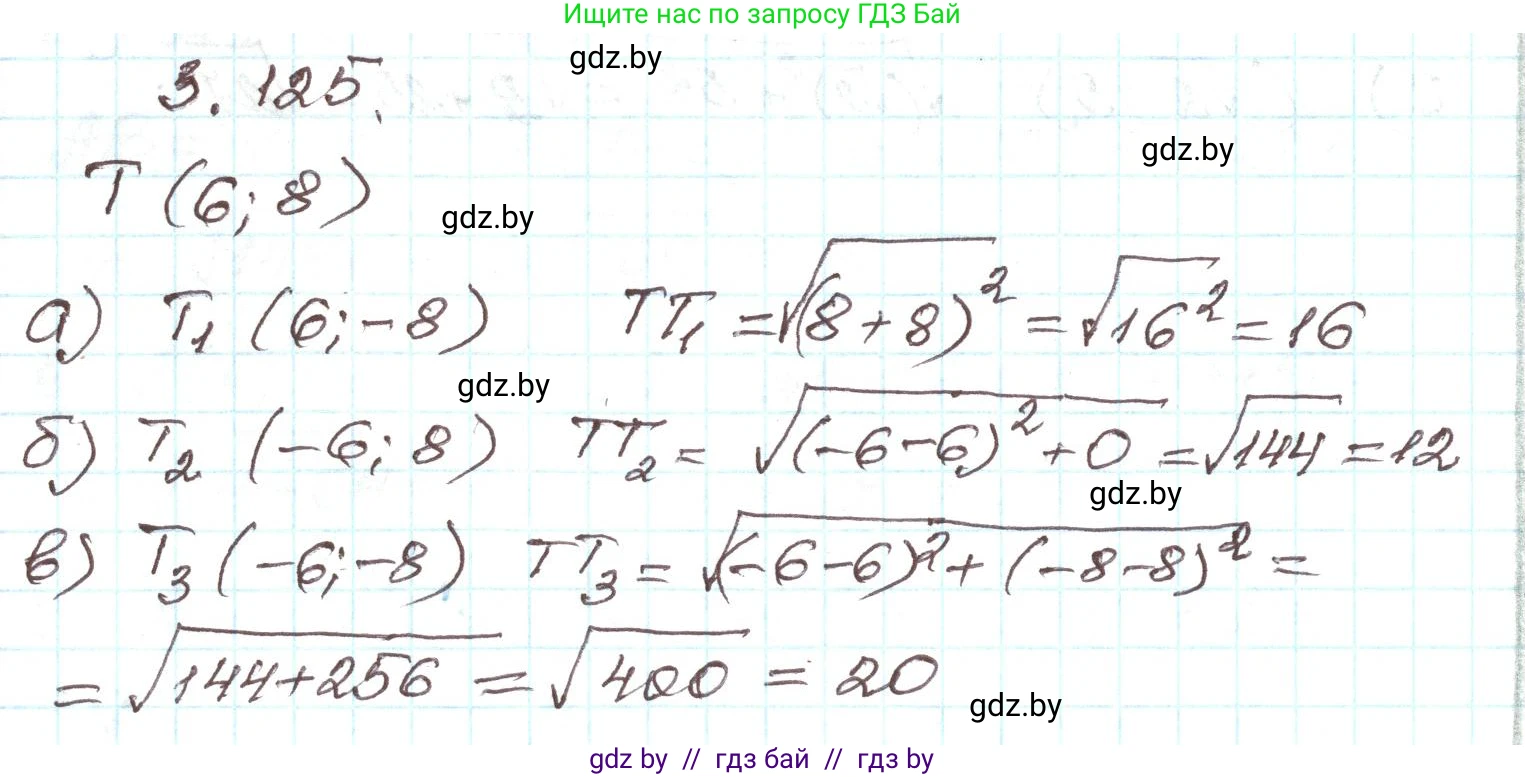 Ищите нас по запросу ГДЗ Бай
gdz.by
3.125.
gdz.by
T (6; 8)
gdz.by
а) T₁ (6; -8) TT₁ = √(8+8)² = √16² = 16
gdz.by
б) T₂ (-6; 8) TT₂ = √(-6-6)²+0 = √144 = 12
gdz.by
в) T₃ (-6; -8) TT₃ = √(-6-6)²+(-8-8)² =
= √144+256 = √400 = 20
gdz.by
gdz by // гдз бай // гдз by